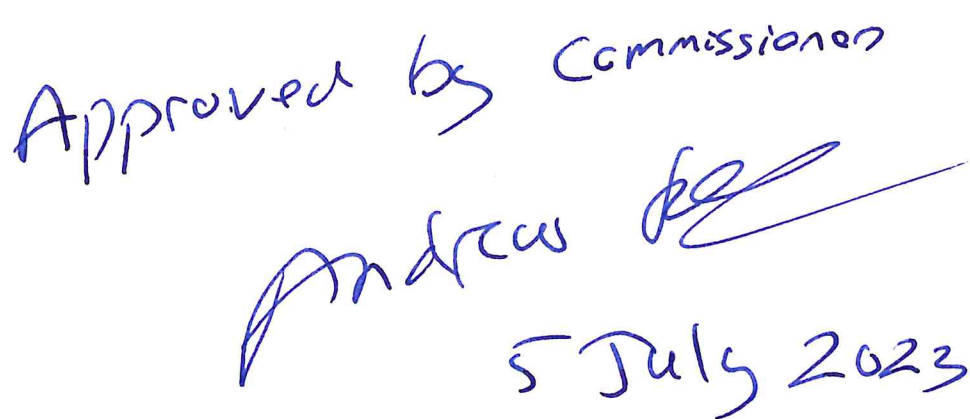 Approved by Commissioner
Andrew
5 July 2023